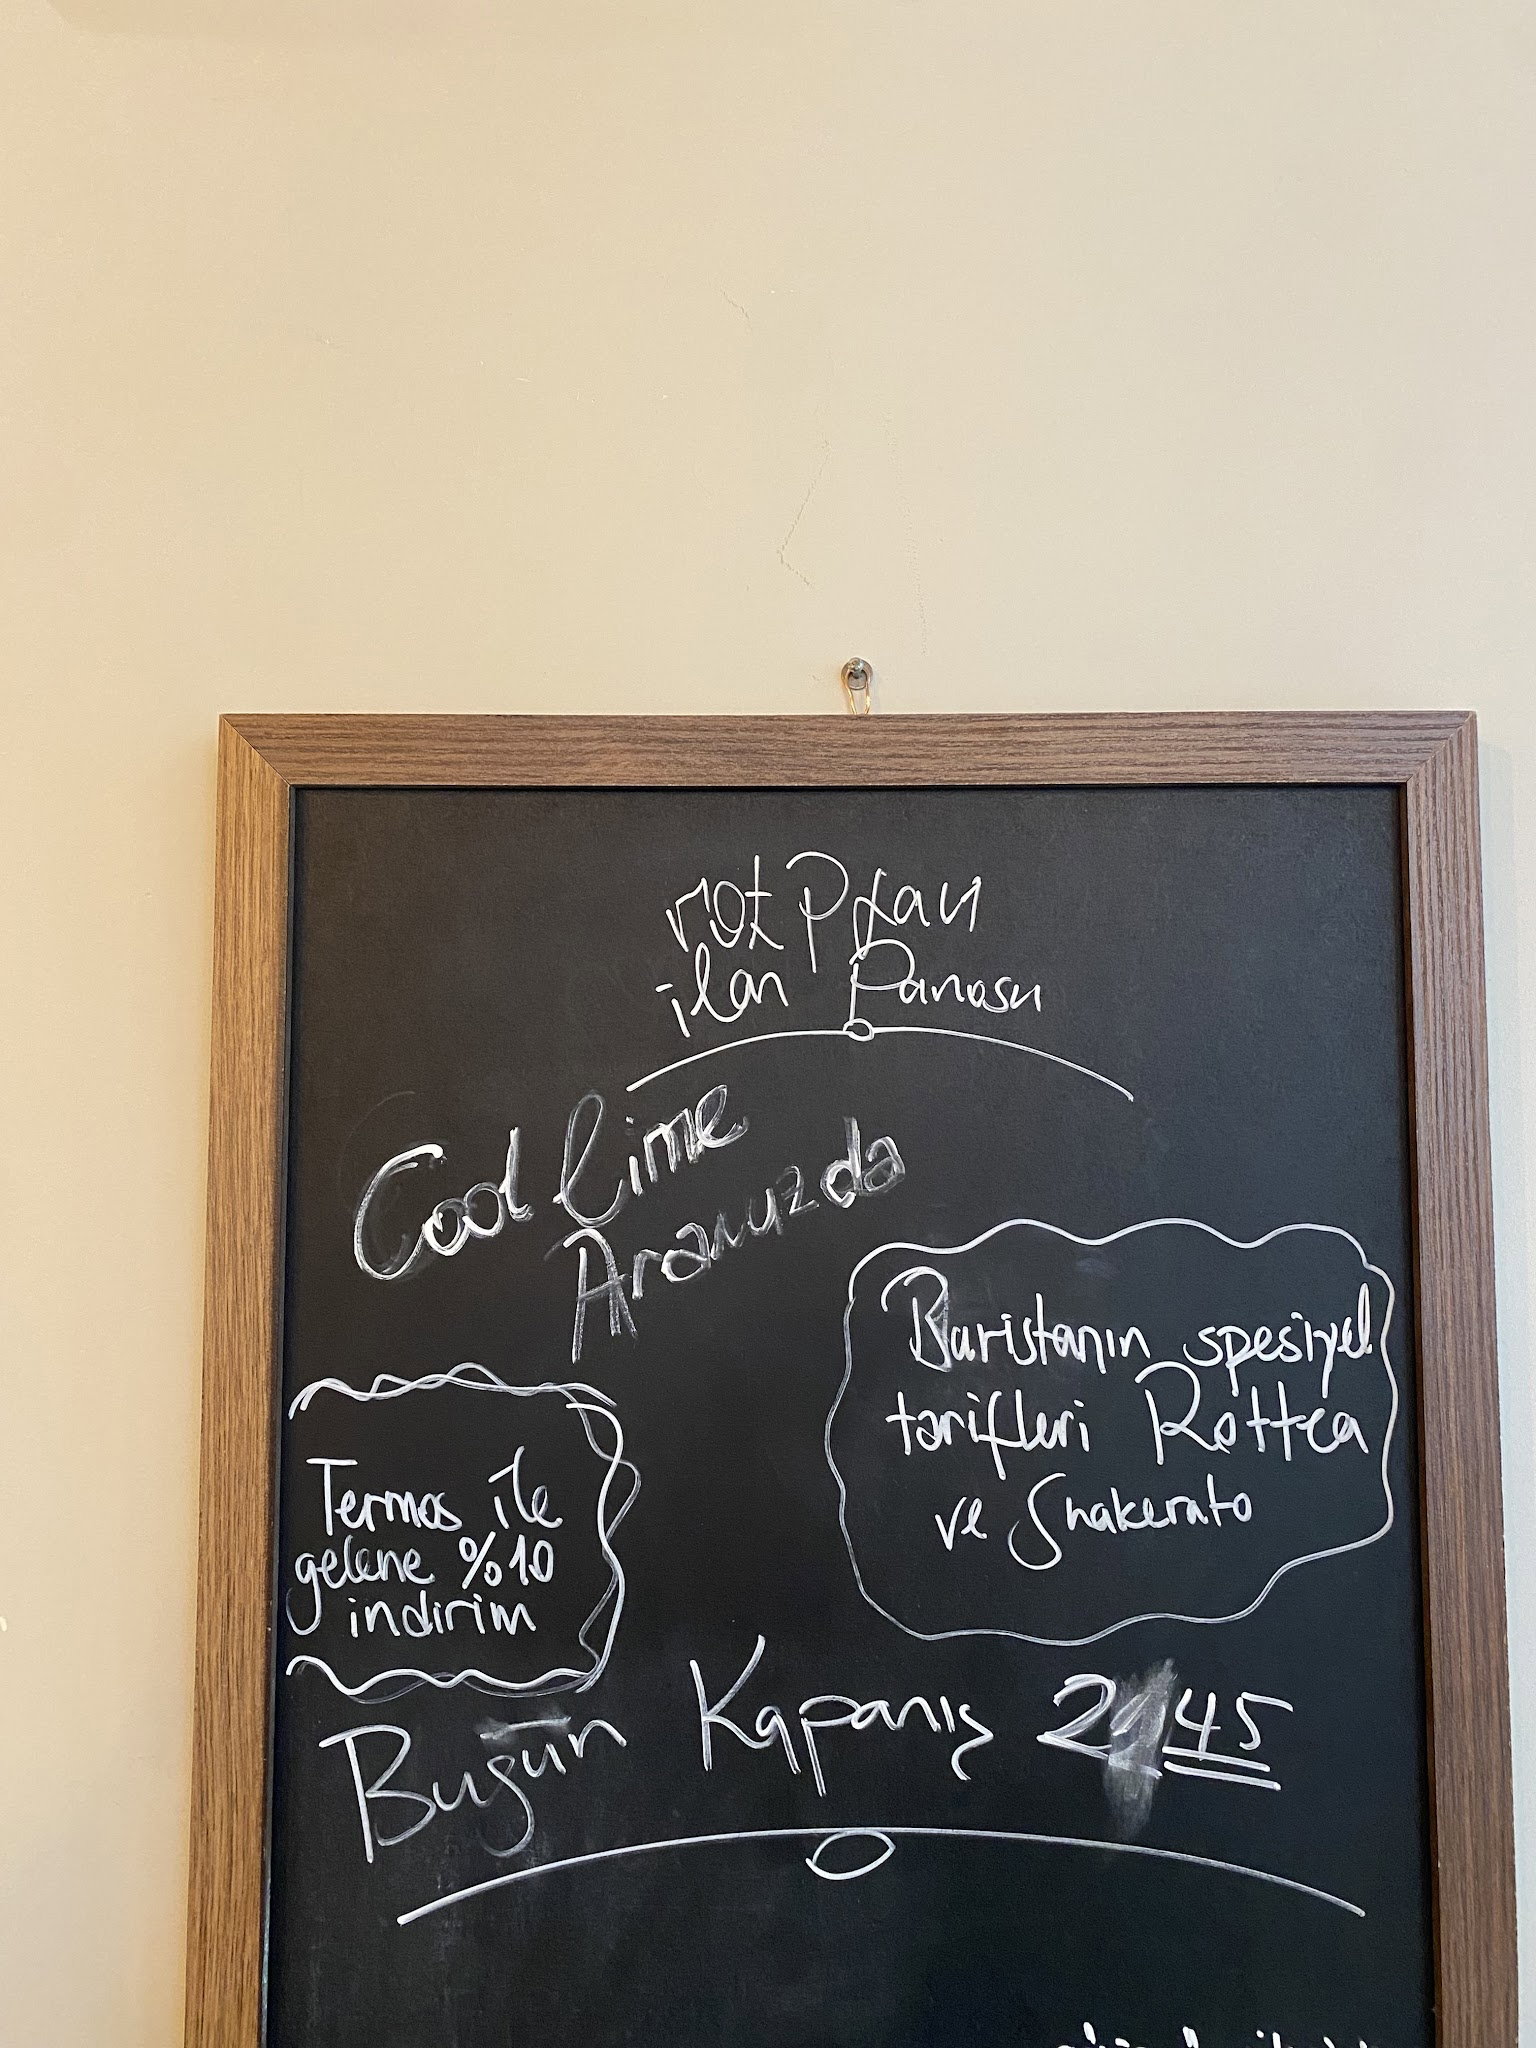 rotPlan
ilan Panosu
Cool lime
Aramızda
Baristanın spesiyel
tarifleri Rottca
ve Shakerato
Termos ile
gelene %10
indirim
Bugün Kapanış 2145